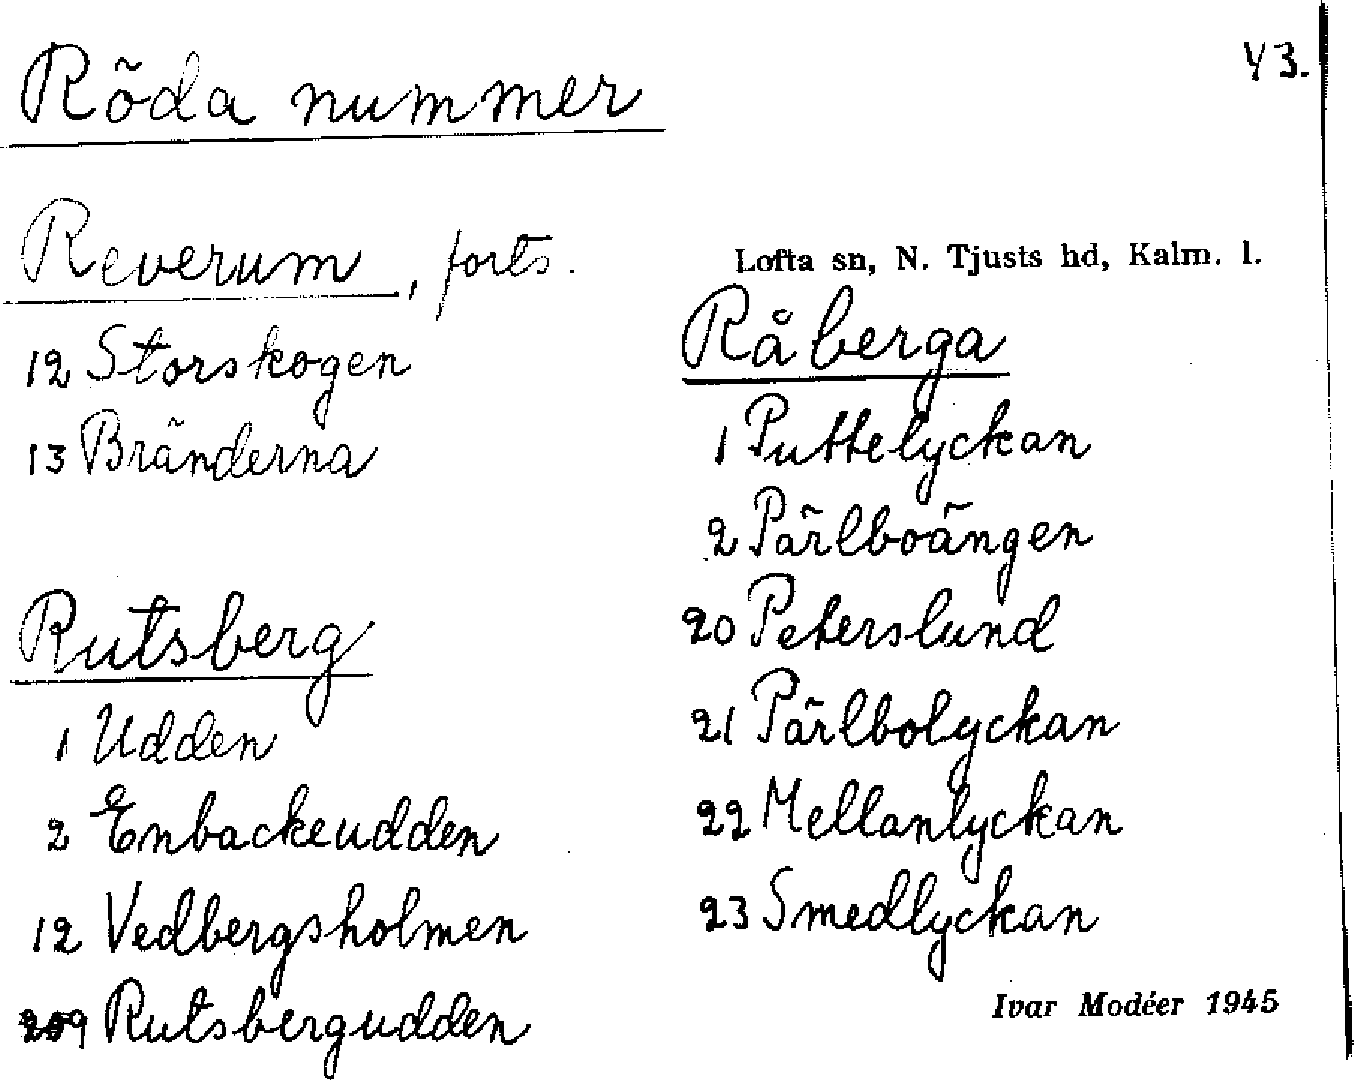 43.
Röda nummer
Reverum, forts.
12 Storskogen
13 Bränderna
Rutsberg
1 Udden
2 Enbackeudden
12 Vedbergsholmen
Rutsbergudden
Lofta sn, N. Tjusts hd, Kalm. l.
Råberga
1 Puttelyckan
2 Pärlboängen
20 Peterslund
21 Pärlbolyckan
22 Mellanlyckan
23 Smedlyckan
Ivar Modéer 1945